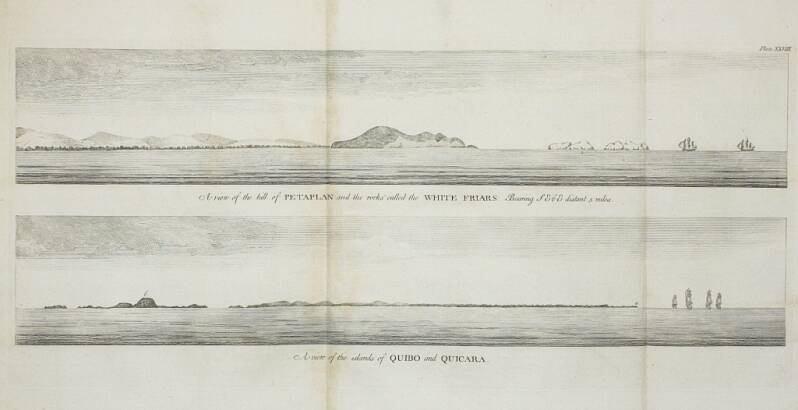 Plate XXVIII
A view of the hill of PETAPLAN and the rocks called the WHITE FRIARS. Bearing SEbE distant 5 miles.
A view of the islands of QUIBO and QUICARA.